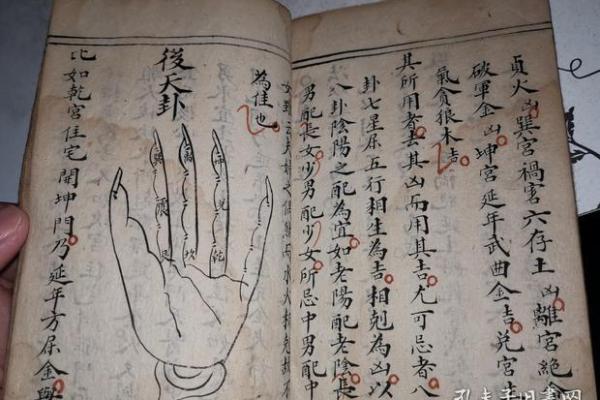 貞火凶巽宮禍害六存土凶離宮絶
破軍金凶坤宮延年武曲金吉兌宮生
氣貪狼木吉
其所用者去其凶而用其吉尤可忌者八
卦七星屬五行相生為吉相剋為凶以
八卦陰陽之配為宜如老陽配老陰長
男配長女少男配少女所忌中男配中
女水火相
為佳也
後天卦
坤兌乾
離坎
巽震艮
比如乾宮住宅開坤門乃延年方屬金與
孔夫子旧书网